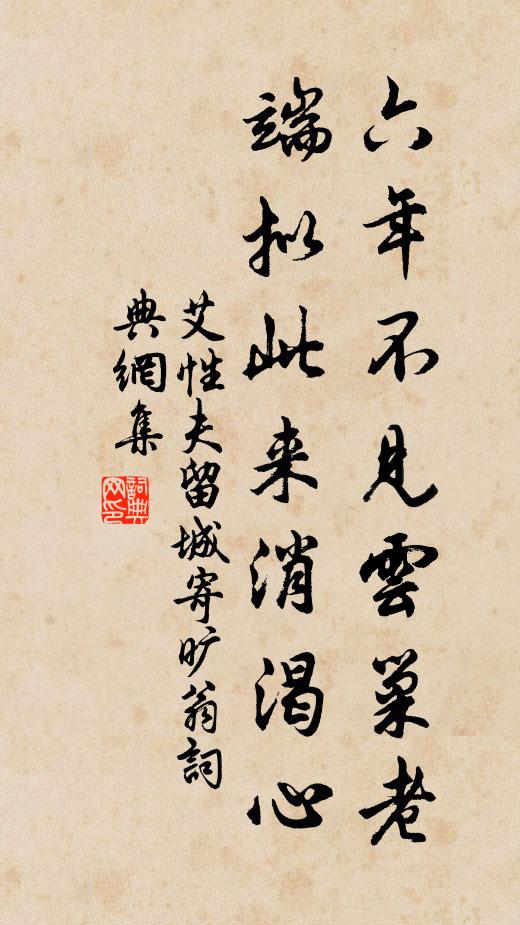 六年不見雲巢老
端拟此来消渴心
艾性夫留城寄旷翁詞
典網集
詞典网印